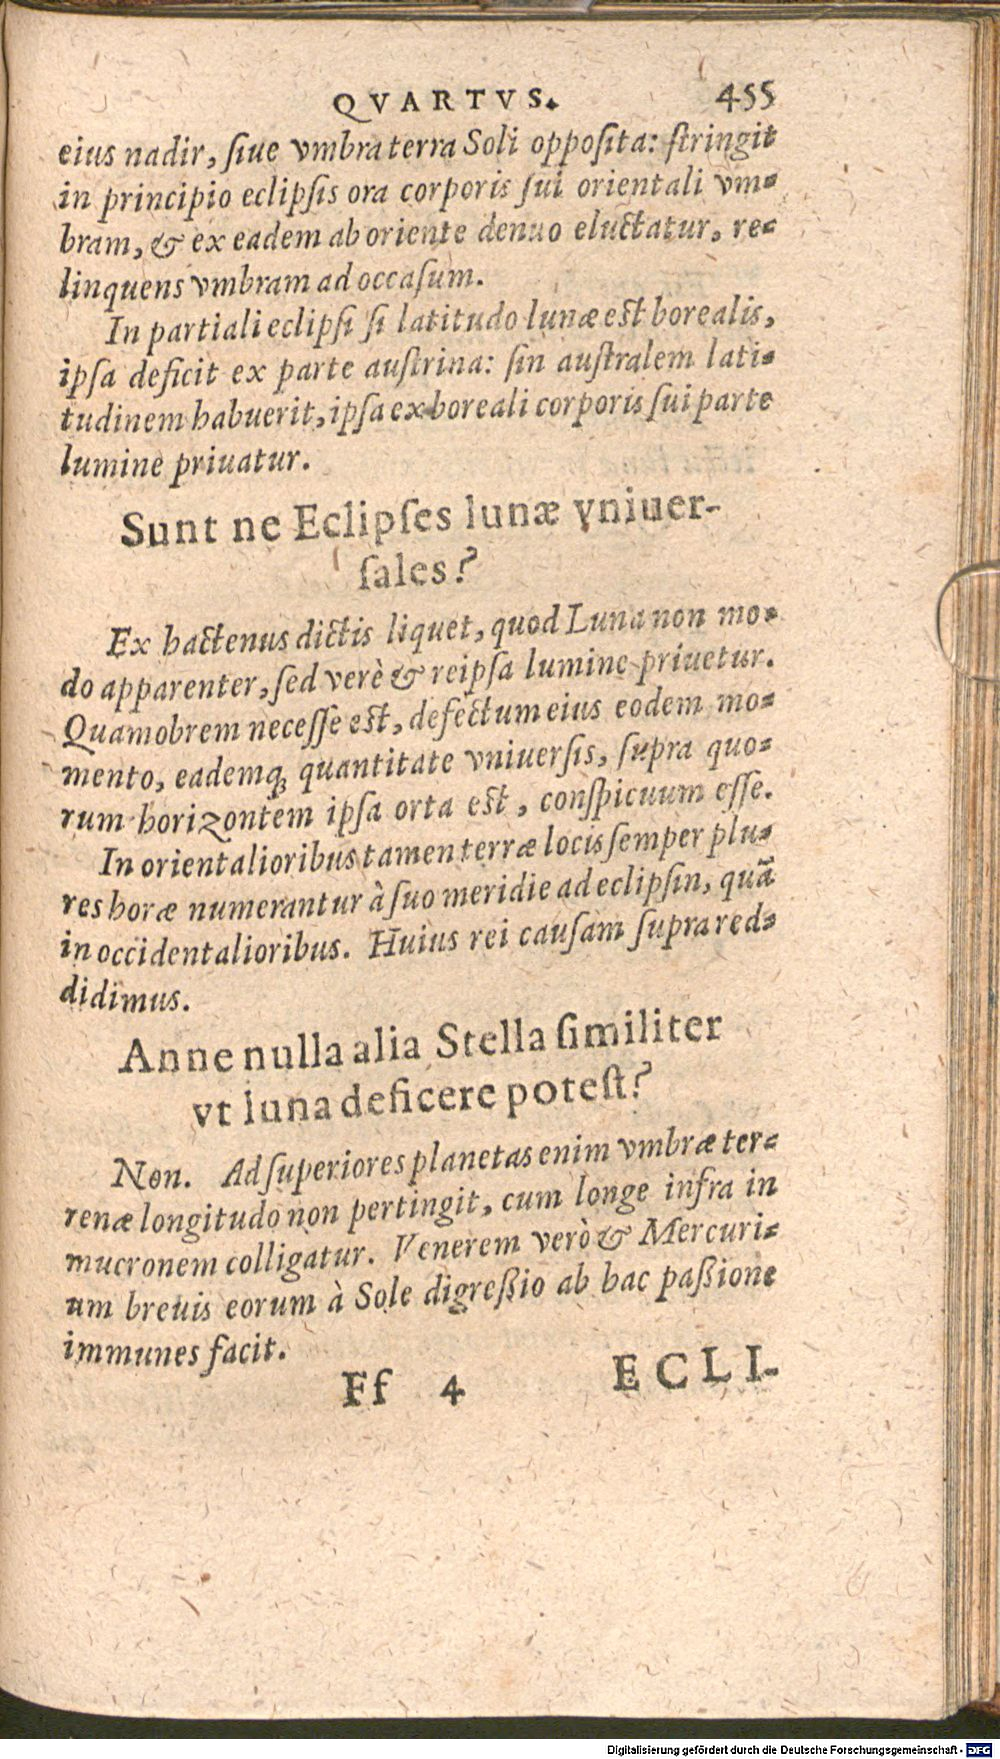 QVARTVS. 455
eius nadir, ſiue vmbra terra Soli oppoſita: ſtringit
in principio eclipſis ora corporis ſui orientali vm-
bram, & ex eadem ab oriente denuo eluctatur, re-
linquens vmbram ad occaſum.
In partiali eclipſi ſi latitudo lunæ eſt borealis,
ipſa deficit ex parte auſtrina: ſin auſtralem lati-
tudinem habuerit, ipſa ex boreali corporis ſui parte
lumine priuatur.
Sunt ne Eclipſes lunæ vniuer-
ſales?
Ex hactenus dictis liquet, quod Luna non mo-
do apparenter, ſed verè & reipſa lumine priuetur.
Quamobrem neceſſe eſt, defectum eius eodem mo-
mento, eademq́; quantitate vniuerſis, ſupra quo-
rum horizontem ipſa orta eſt, conſpicuum eſſe.
In orientalioribus tamen terræ locis ſemper plu-
res horæ numerantur à ſuo meridie ad eclipſin, quã
in occidentalioribus. Huius rei cauſam ſupra red-
didimus.
Anne nulla alia Stella ſimiliter
vt luna deficere poteſt?
Non. Ad ſuperiores planetas enim vmbræ ter-
renæ longitudo non pertingit, cum longe infra in
mucronem colligatur. Venerem verò & Mercuri-
um breuis eorum à Sole digreßio ab hac paßione
immunes facit.
Ff 4 ECLI-
Digitalisierung gefördert durch die Deutsche Forschungsgemeinschaft - DFG